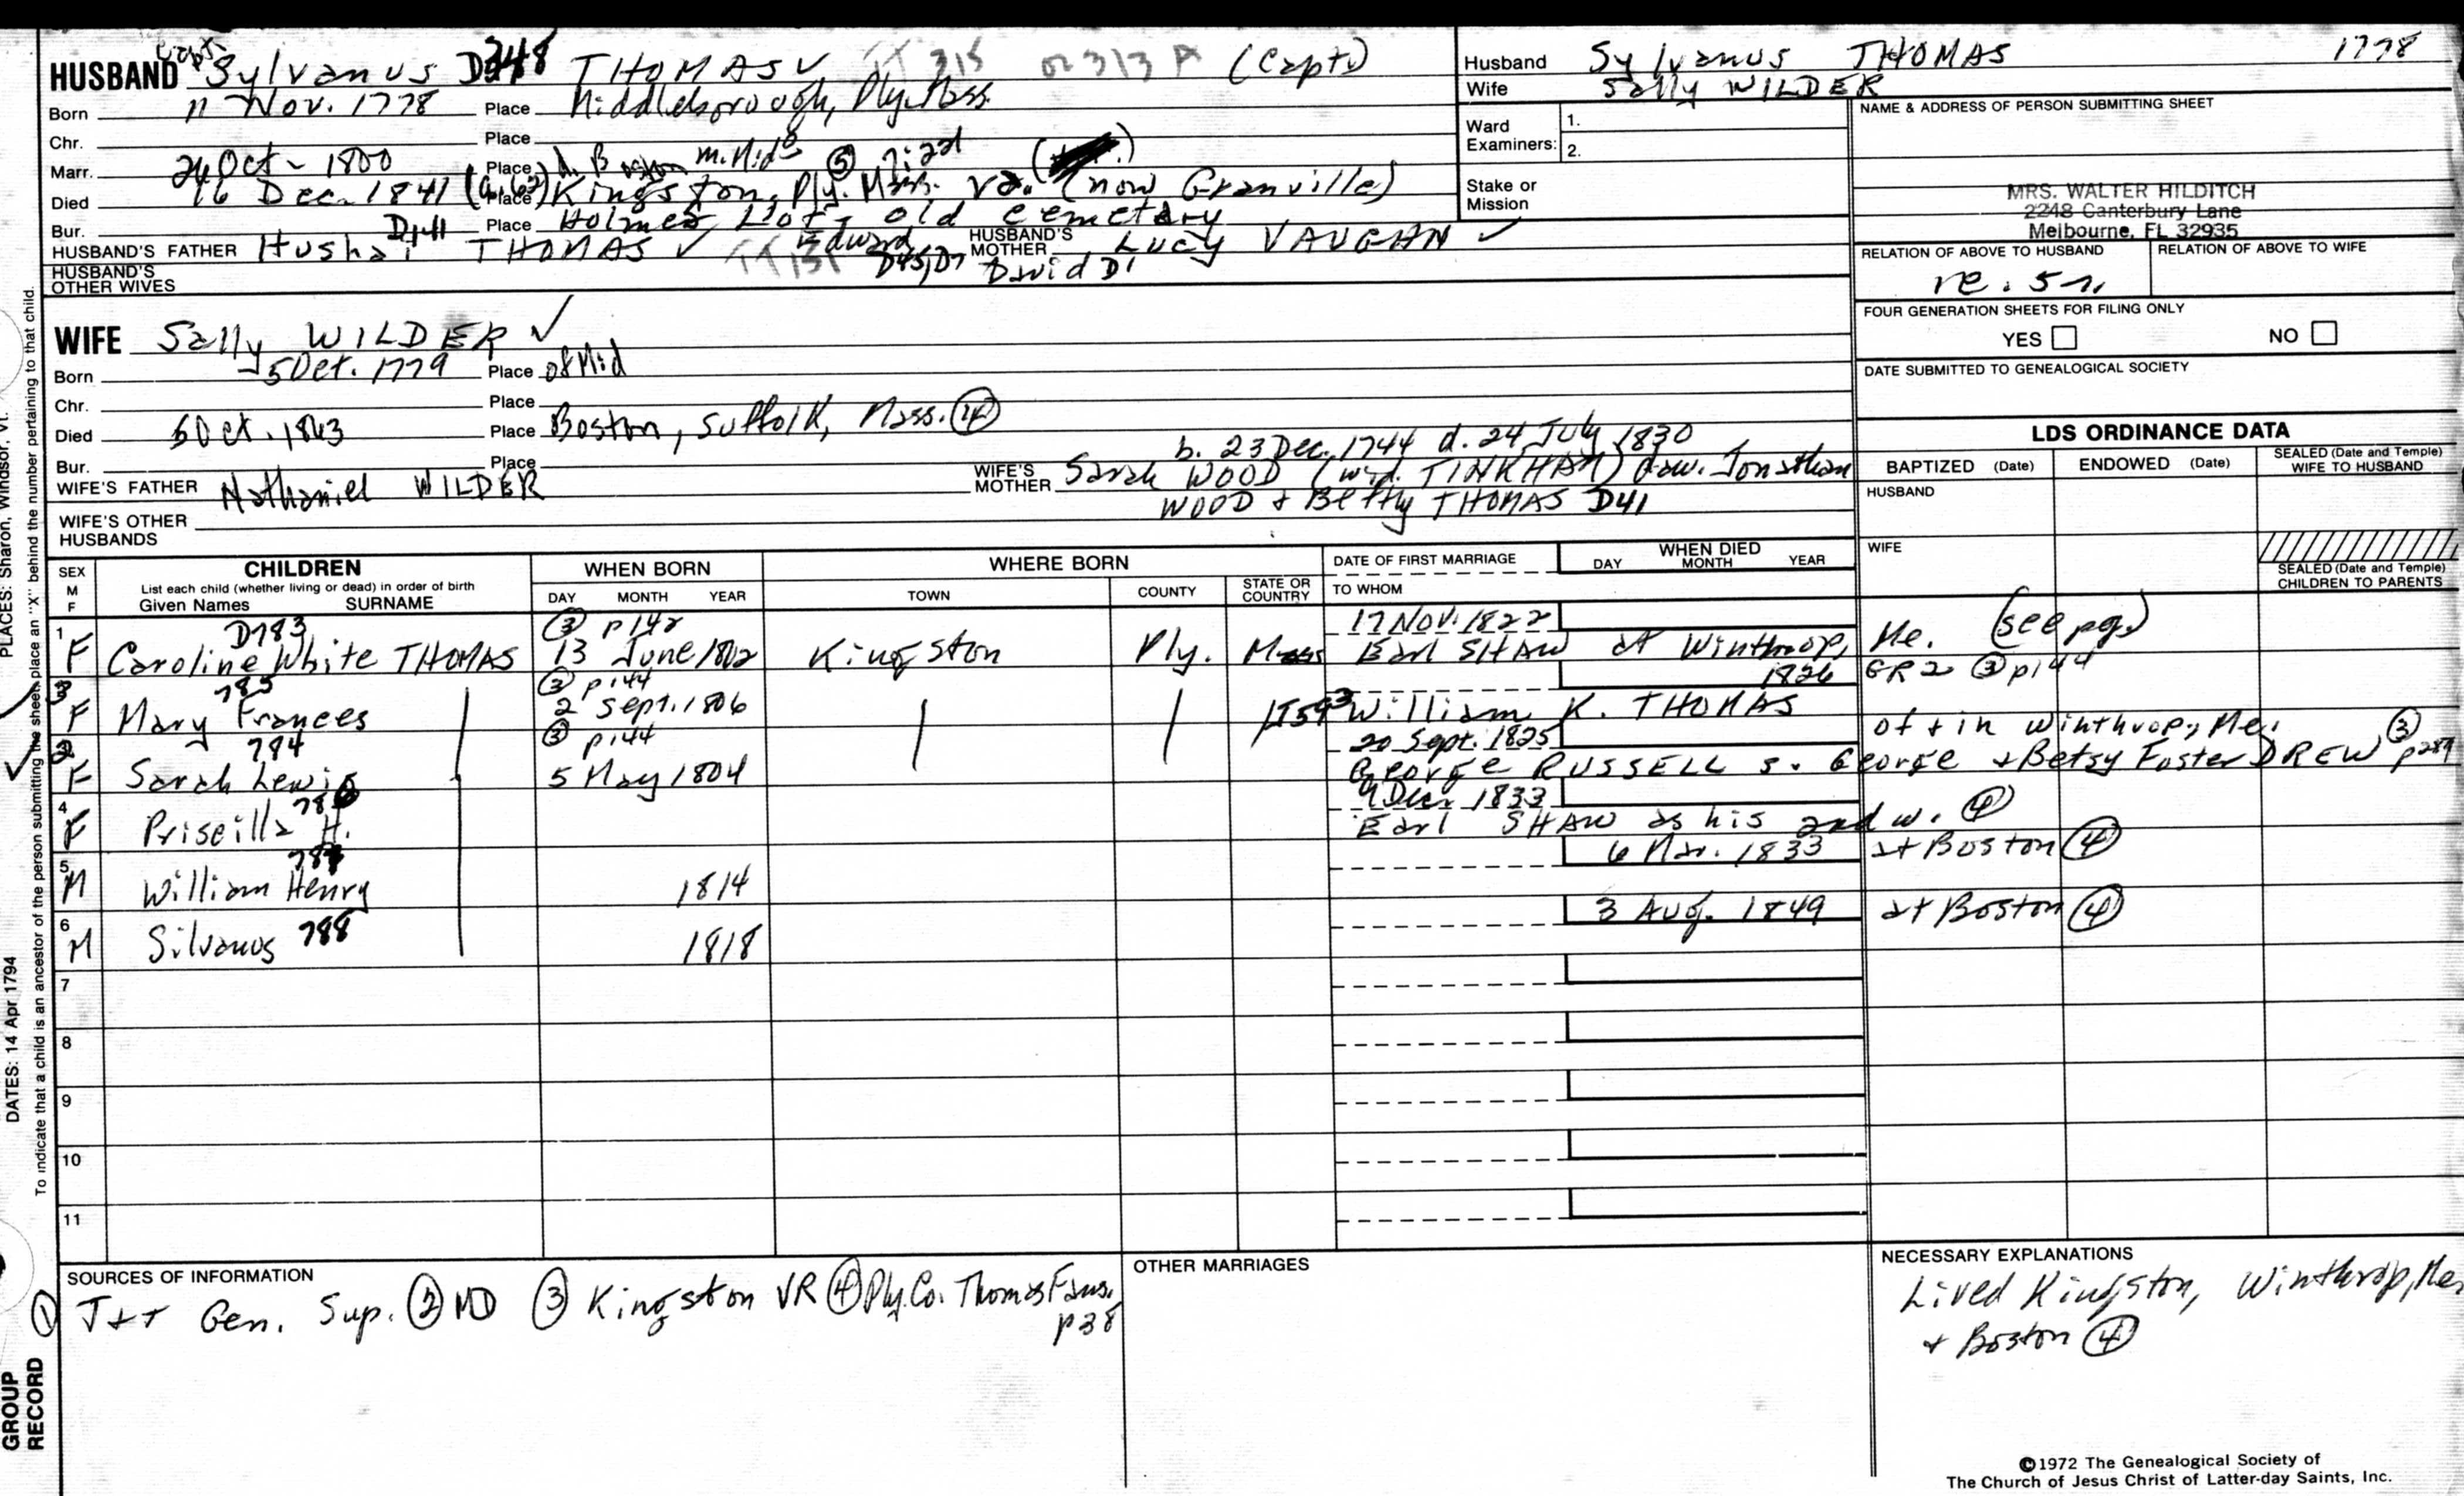 HUSBAND Capt. Sylvanus D348 THOMAS ✓ TT 315 or 313 A (Capt)
Born 11 Nov. 1778 Place Middleborough, Ply. Mass.
Chr. Place
Marr. 26 Oct - 1800 Place m. Mid ⑤
Died 16 Dec. 1841 (a. 63) Place Kingston, Ply. Mass. (now Granville)
Bur. Place Holmes Lot, old cemetary
HUSBAND'S FATHER Hushai D141 THOMAS ✓ TT 131 Edward D45, D7 David D1 HUSBAND'S MOTHER Lucy VAUGHN ✓
HUSBAND'S OTHER WIVES
Husband Sylvanus THOMAS 1778
Wife Sally WILDER
Ward Examiners: 1.
2.
Stake or Mission
NAME & ADDRESS OF PERSON SUBMITTING SHEET
MRS. WALTER HILDITCH
2248 Canterbury Lane
Melbourne, FL 32935
RELATION OF ABOVE TO HUSBAND RELATION OF ABOVE TO WIFE
FOUR GENERATION SHEETS FOR FILING ONLY
YES NO
DATE SUBMITTED TO GENEALOGICAL SOCIETY
WIFE Sally WILDER ✓
Born 5 Oct. 1779 Place of Mid
Chr. Place
Died 6 Oct. 1843 Place Boston, Suffolk, Mass. ④
Bur. Place
WIFE'S FATHER Nathaniel WILDER
b. 23 Dec. 1744 d. 24 July 1830
WIFE'S MOTHER Sarah WOOD (wid. TINKHAM) daw. Jonathan
WOOD + Betty THOMAS D41
WIFE'S OTHER HUSBANDS
LDS ORDINANCE DATA
BAPTIZED (Date) ENDOWED (Date) SEALED (Date and Temple) WIFE TO HUSBAND
HUSBAND
WIFE
SEALED (Date and Temple) CHILDREN TO PARENTS
SEX M F CHILDREN List each child (whether living or dead) in order of birth Given Names SURNAME
WHEN BORN DAY MONTH YEAR
WHERE BORN TOWN COUNTY STATE OR COUNTRY
DATE OF FIRST MARRIAGE TO WHOM
WHEN DIED DAY MONTH YEAR
1 D783 ③ p142 17 Nov. 1822 (see pg.)
F Caroline White THOMAS 13 June 1802 Kingston Ply. Mass Earl SHAW at Winthrop, Me.
3 785 ③ p144 1826 GR2 ③ p144
F Mary Frances 2 Sept. 1806 TT593 William K. THOMAS
2 784 ③ p144 20 Sept. 1825 of + in Winthrop, Me.
F Sarah Lewis 5 May 1804 George RUSSELL s. George + Betsy Foster DREW ③ p289
4 786 9 Dec. 1833
F Priscilla H. Earl SHAW as his 2nd w. ④
5 787 6 Mar. 1833 at Boston ④
M William Henry 1814
6 3 Aug. 1849 at Boston ④
M Silvanus 788 1818
7
8
9
10
11
SOURCES OF INFORMATION
① T+T Gen. Sup. ② MD ③ Kingston VR ④ Ply. Co. Thomas Fams. p38
OTHER MARRIAGES
NECESSARY EXPLANATIONS
Lived Kingston, Winthrop, Me.
+ Boston ④
©1972 The Genealogical Society of
The Church of Jesus Christ of Latter-day Saints, Inc.
PLACES: Sharon, Windsor, Vt.
DATES: 14 Apr 1794
To indicate that a child is an ancestor of the person submitting the sheet, place an "X" behind the number pertaining to that child.
GROUP
RECORD